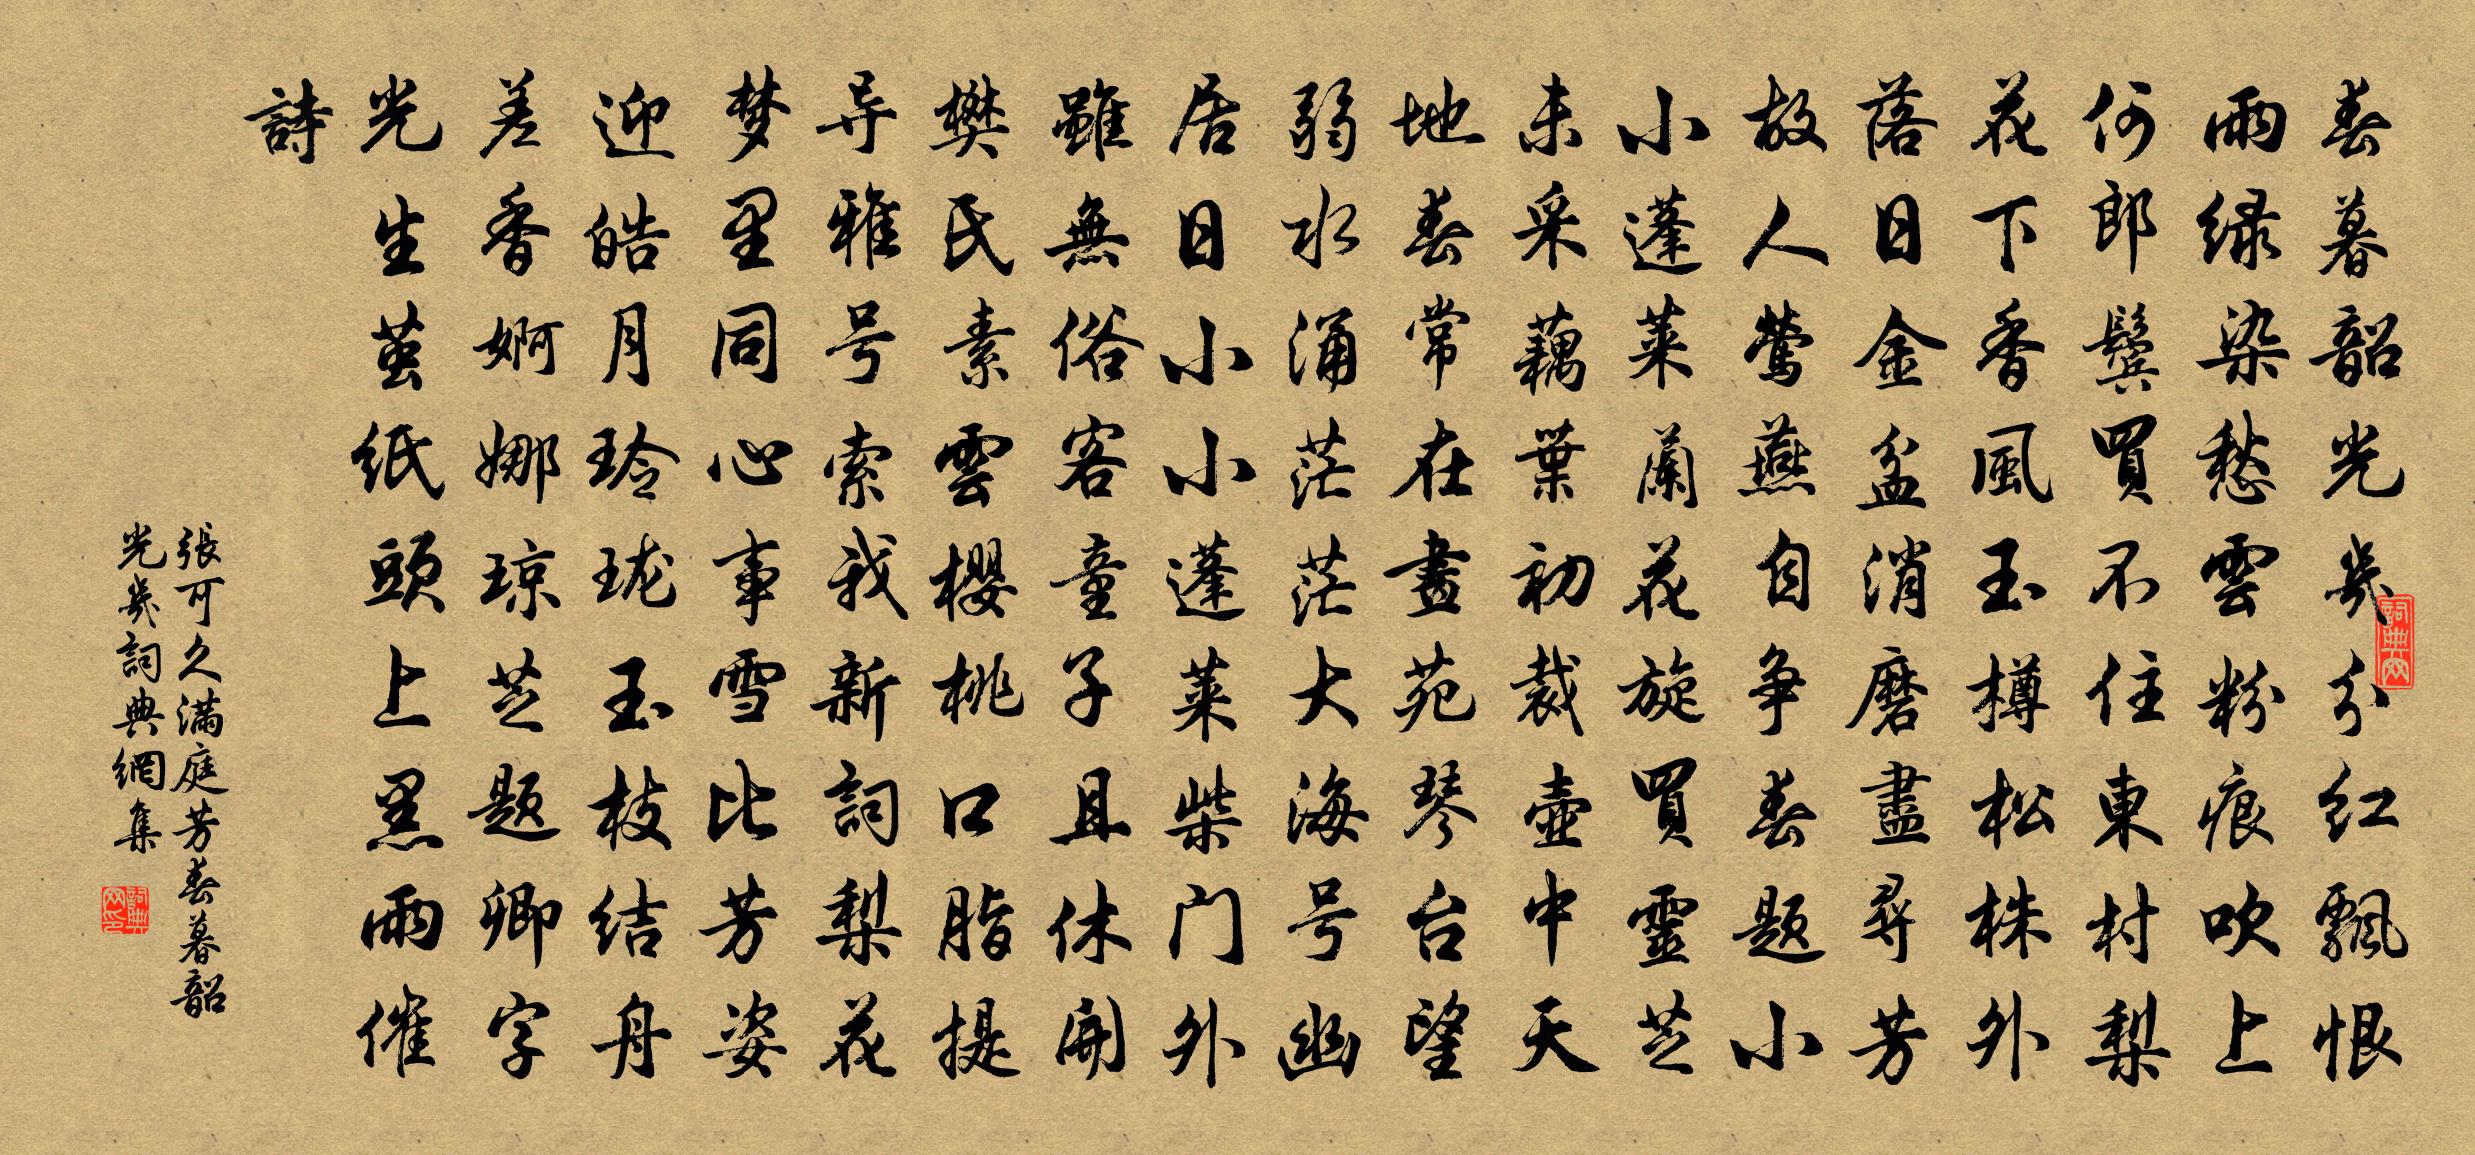 春暮韶光幾分红飄恨
雨绿染愁雲粉痕吹上
何郎鬓買不住東村梨
花下香風玉樽松株外
落日金盆消磨盡尋芳
故人鶯燕自争春题小
小蓬莱蘭花旋買靈芝
未采藕葉初裁壺中天
地春常在畫苑琴台望
弱水涌茫茫大海号幽
居日小小蓬莱柴门外
雖無俗客童子且休開
樊氏素雲櫻桃口脂提
导雅号索我新詞梨花
梦里同心事雪比芳姿
迎皓月玲珑玉枝结丹
差香婀娜琼芝题卿字
光生茧纸頭上黑雨催
詩
張可久满庭芳春暮韶
光幾詞典網集
詞典网
詞典网印